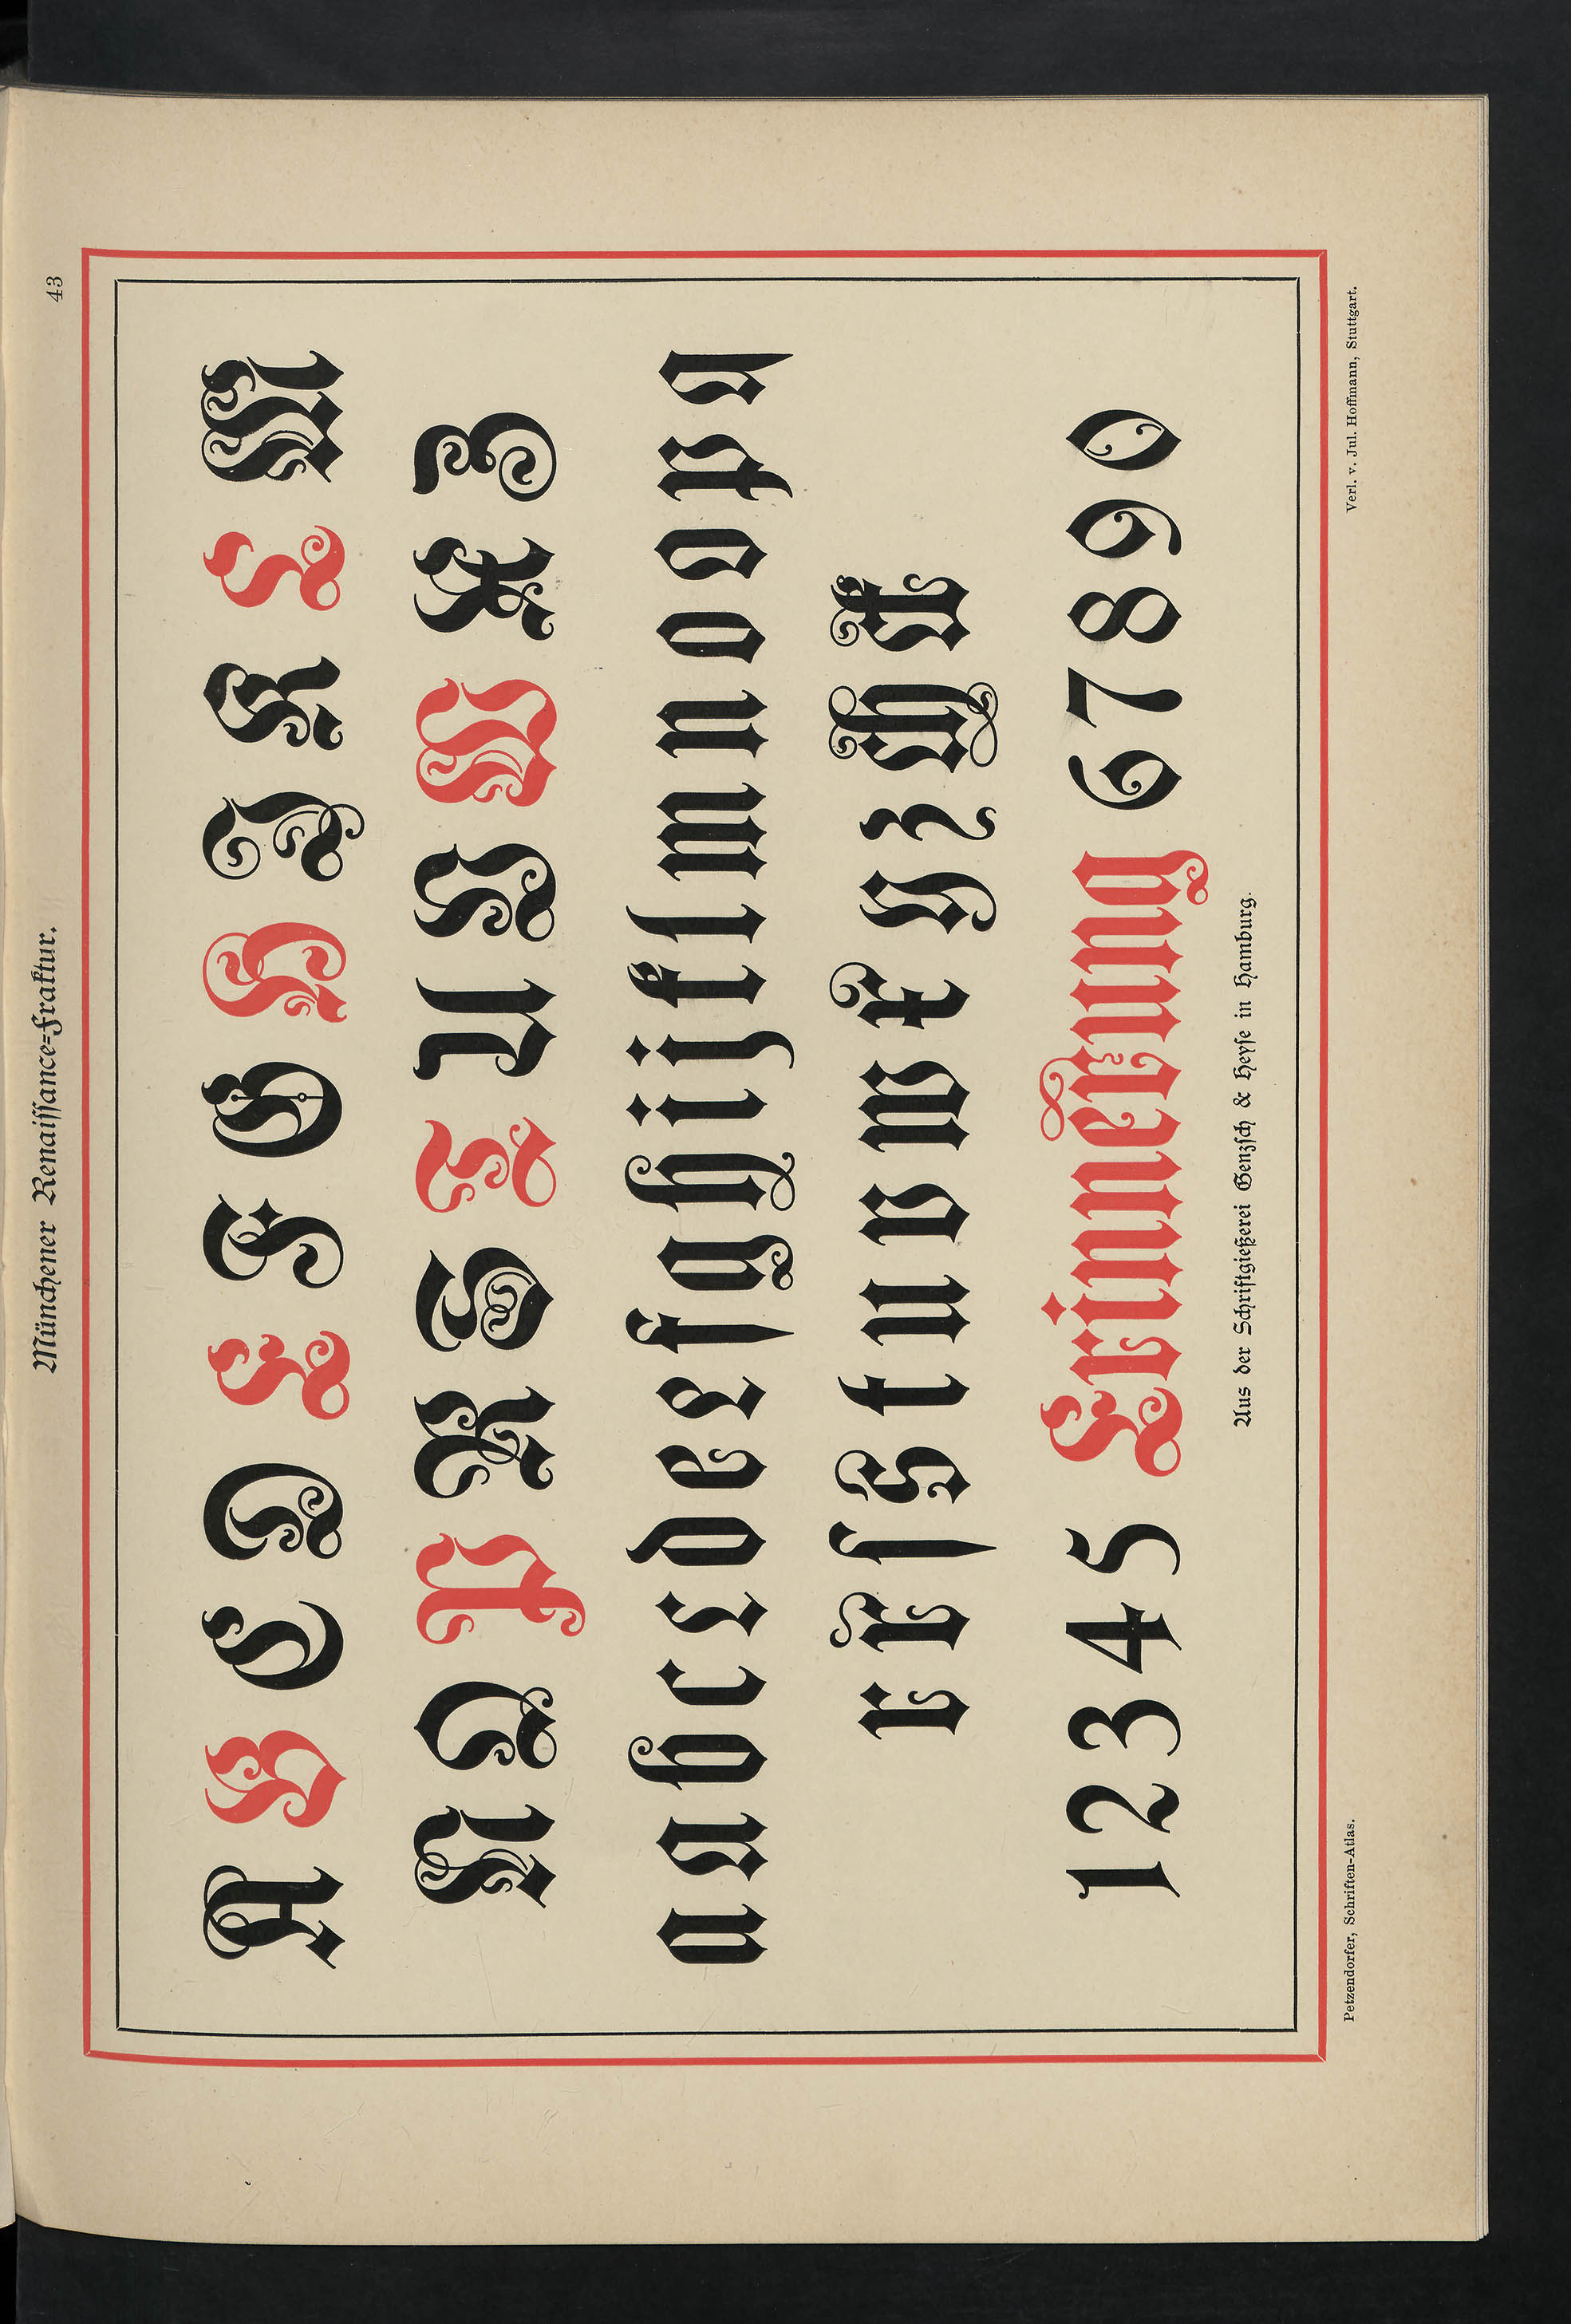 43
Münchener Renaiſſance=Fraktur.
A B C D E F G H J K L M
N O P R S T U V W X Z
a a b c c d e e f g h i j k l m n o o p q
r r ſ s t u v w x y z ch ck
12345 Erinnerung 67890
Aus der Schriftgießerei Genzſch & Heyſe in Hamburg.
Petzendorfer, Schriften-Atlas.
Verl. v. Jul. Hoffmann, Stuttgart.